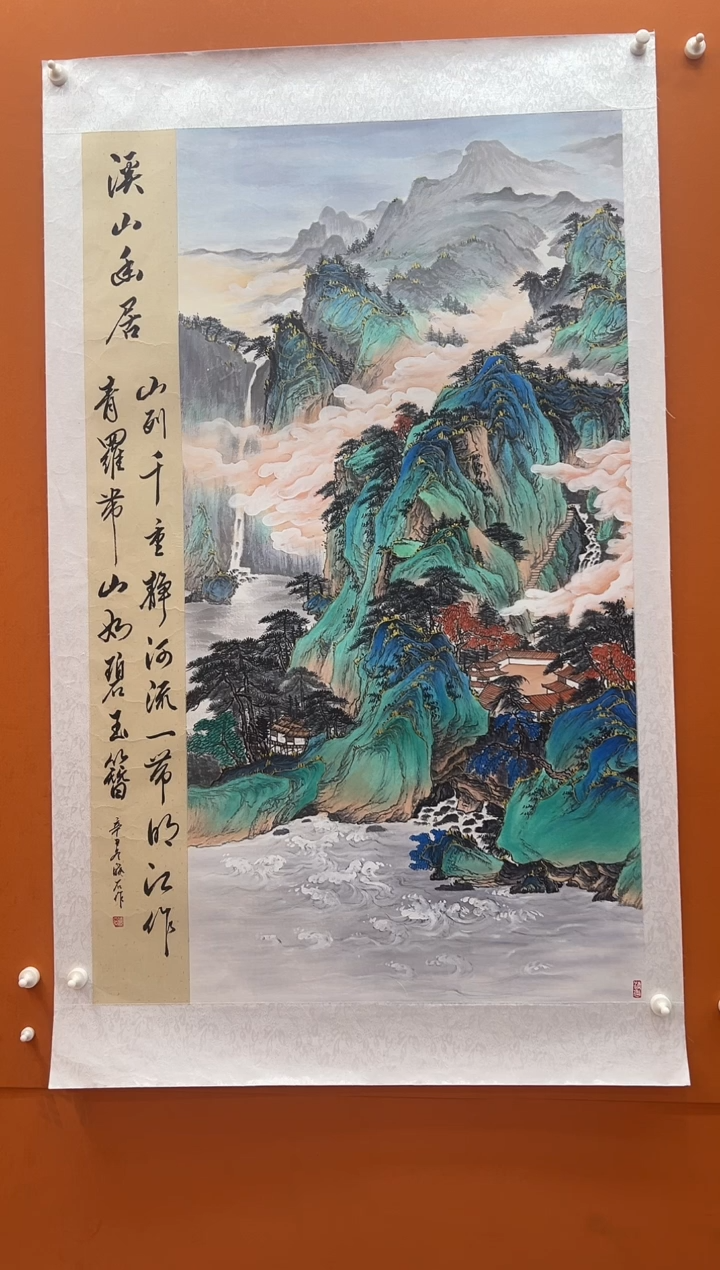 溪山幽居
山列千重静河流一带明江作
青羅带山如碧玉簪
辛丑冬 石作